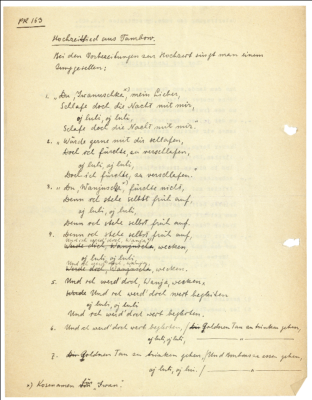 PK 163
Hochzeitslied aus Tambow.
Bei den Vorbereitungen zur Hochzeit singt man einem
Junggesellen:
1. "Du, Iwanuschka*), mein Lieber,
Schlafe doch die Nacht mit mir,
oj luti, oj luti,
Schafe doch die Nacht mit mir."
2. "Würde gerne mit dir schlafen,
Doch ich fürchte, zu verschlafen,
oj luti, oj luti,
Doch ich fürchte, zu verschlafen."
3. "Du, Wanjuscha, fürchte nicht,
Denn ich stehe selbst früh auf,
oj luti, oj luti,
Denn ich stehe selbst früh auf.
4. Denn ich stehe selbst früh auf,
Und ich werd' doch, Wanja,
wecken,
oj luti, oj luti
Und ich werd' doch, Wanja,
wecken.
5. Und ich werd' doch, Wanja, wecken,
Und ich werd' doch weit begleiten
oj luti, oj luti
Und ich werd' doch weit begleiten.
6. Und ich werd' doch weit begleiten, / Goldnen Tau zu trinken geben,
oj luti, oj luti,
7. Goldnen Tau zu trinken geben, / Und zu essen geben,
oj luti, oj luti. /
*) Kosenamen für "Iwan".